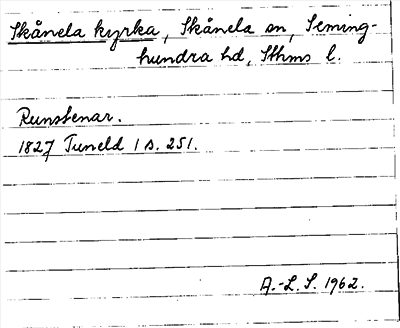 Skånela kyrka, Skånela sn, Seming-
hundra hd, Sthms l.
Runstenar.
1827 Tuneld I s. 251.
A.-L. S. 1962.